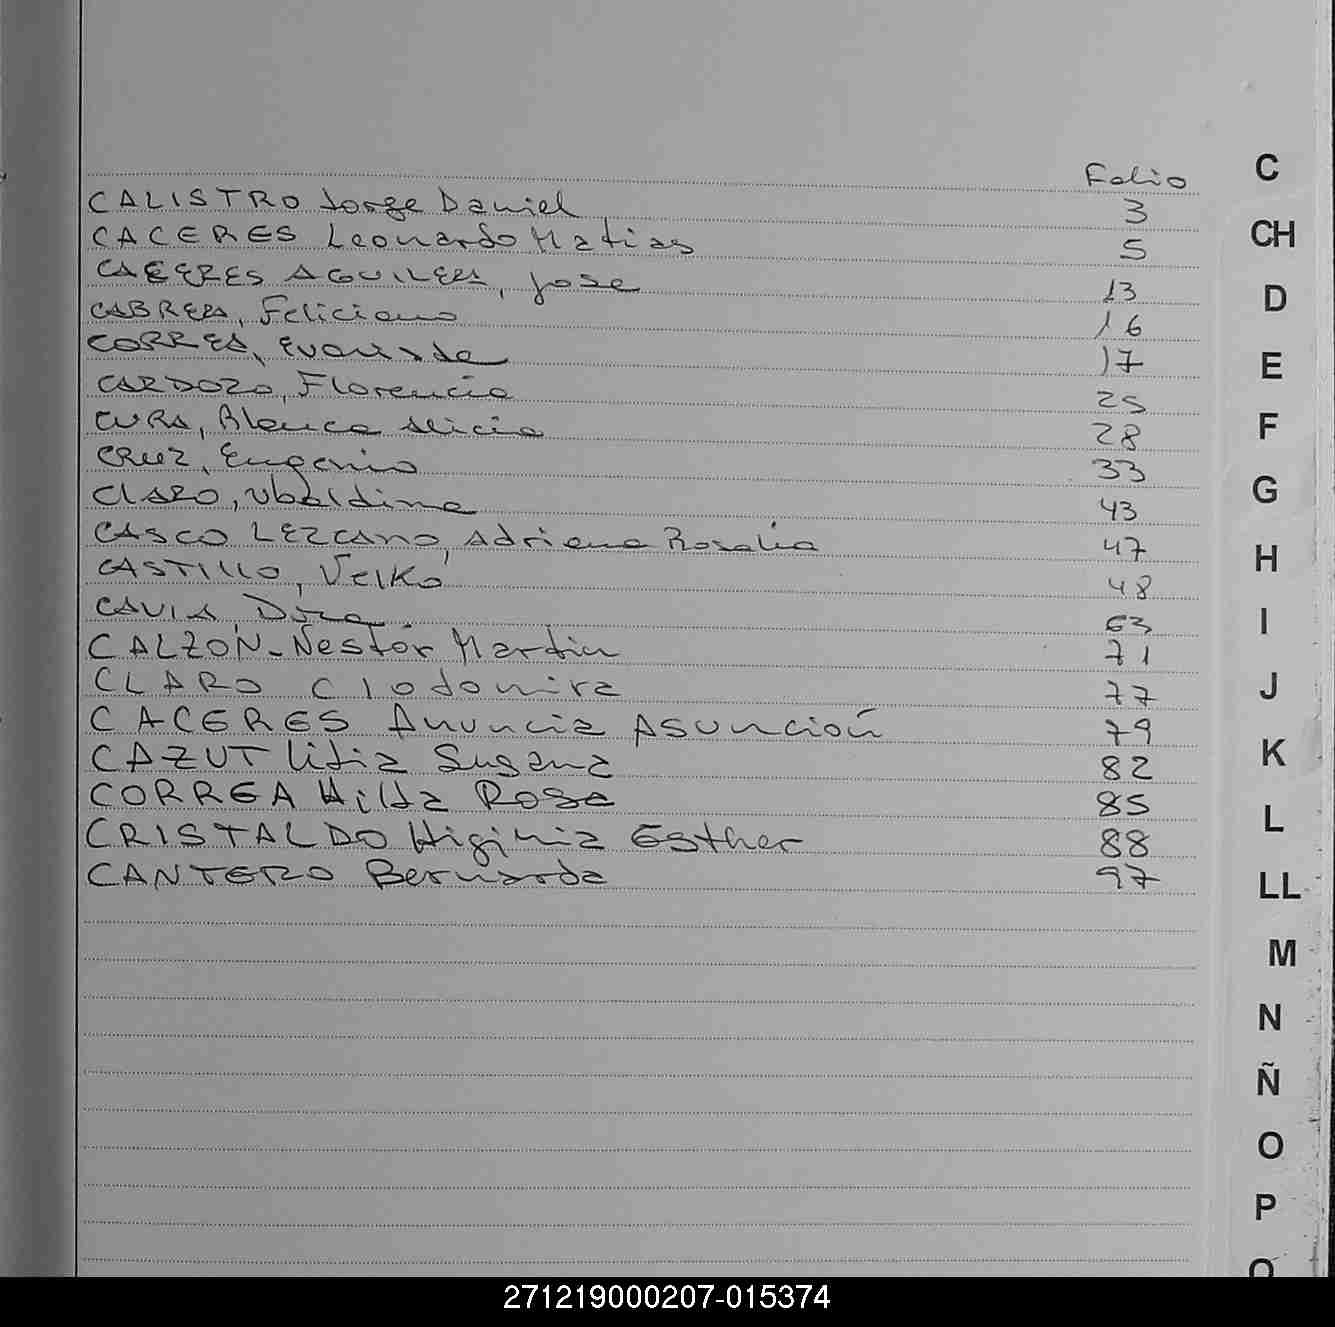 Folio
CALISTRO Jorge Daniel, 3
CACERES Leonardo Matias 5
CACERES AGUILERA, Jose 13
CABRERA, Feliciano 16
CORREA, Evaristo 17
CARDOZO, Florencio 25
CURA, Blanca Alicia 28
CRUZ, Eugenio 33
CLARO, Ubaldina 43
CASCO LEZCANO, Adriana Rosalia 47
CASTILLO, Velko 48
CAVIA, 63
CALZÓN-Nestór Martin 71
CLARO Clodomira 77
CACERES Anuncia Asunción 79
CAZUT Litia Susana 82
CORREA Hilda Rosa 85
CRISTALDO Higinia Esther 88
CANTERO Bernarda 97
C
CH
D
E
F
G
H
I
J
K
L
LL
M
N
Ñ
O
P
271219000207-015374